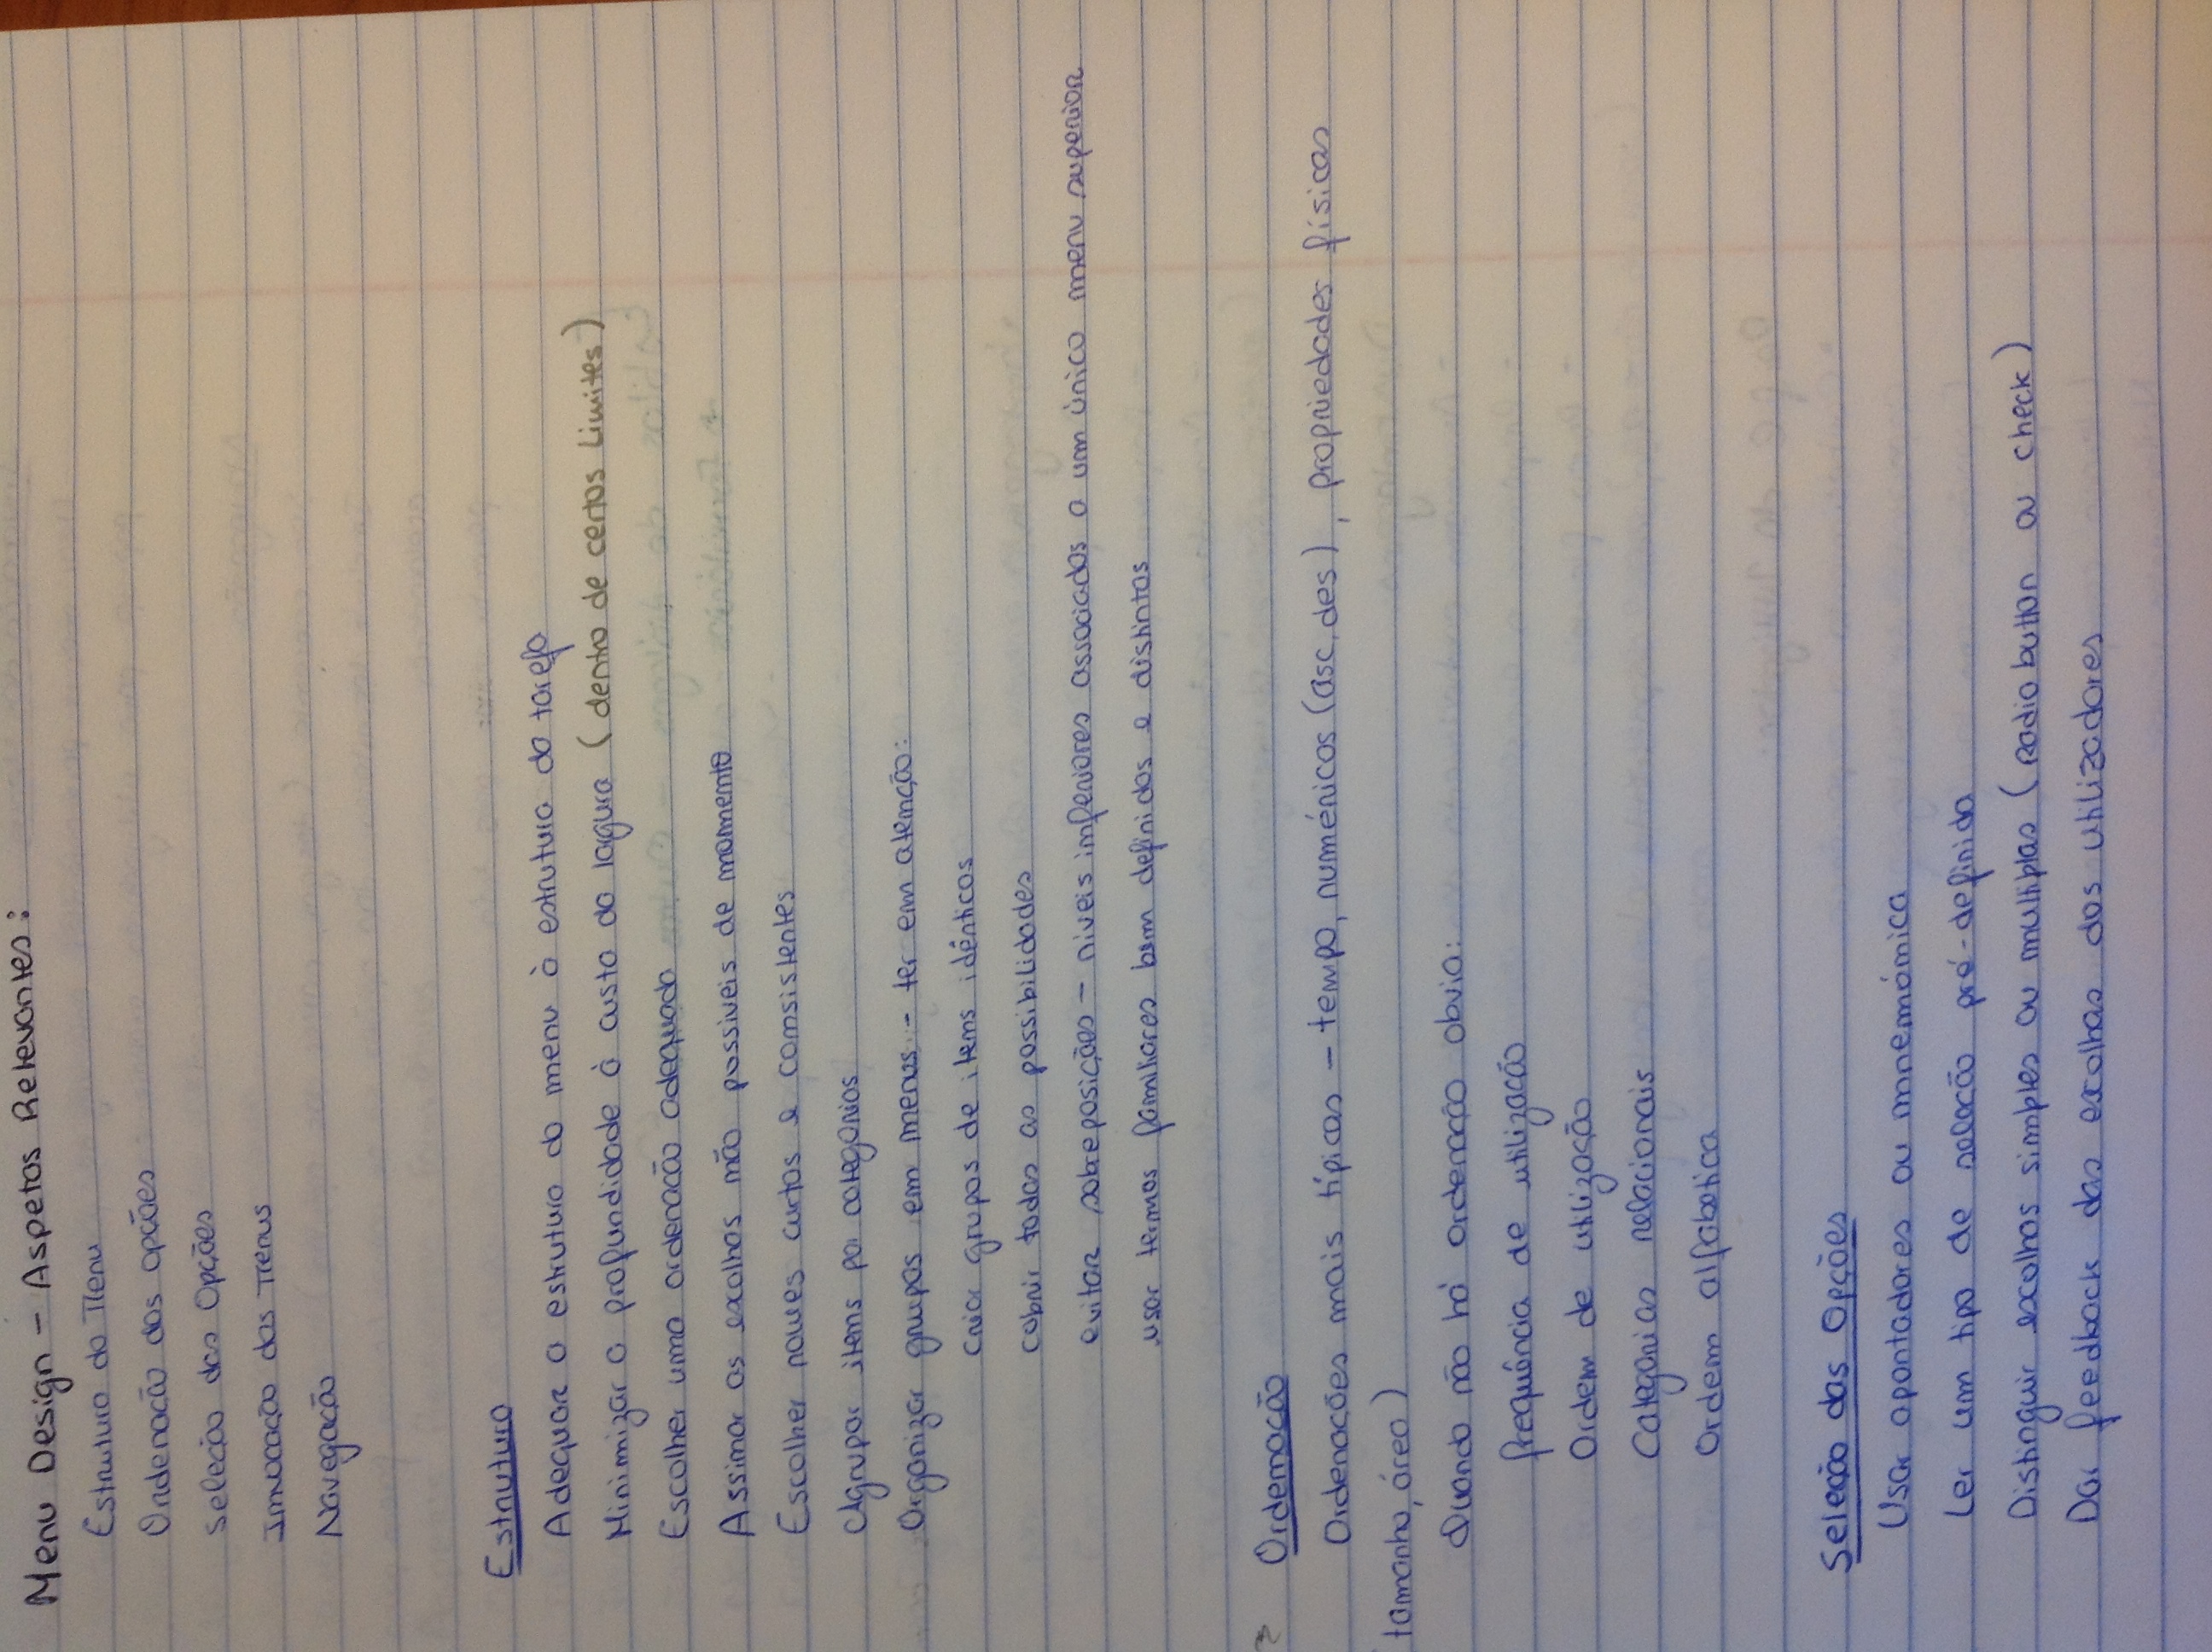 Menu Design - Aspetos Relevantes:
Estrutura do Menu
Ordenação das opções
Seleção das Opções
Invocação dos Menus
Navegação
Estrutura
Adequar a estrutura do menu à estrutura da tarefa
Minimizar a profundidade à custa da largura (dentro de certos limites)
Escolher uma ordenação adequada
Assinar as escolhas não possiveis de momento
Escolher nomes curtos e consistentes
Agrupar items por categorias
Organizar grupos em menus - ter em atenção:
criar grupos de items idênticos
cobrir todas as possibilidades
evitar sobreposições - niveis inferiores associados a um único menu superior
usar termos familiares bem definidos e distintos
Ordenação
Ordenações mais típicas - tempo, numéricos (asc, des), propriedades físicas
(tamanho, área)
Quando não há ordenação obvia:
frequência de utilização
Ordem de utilização
Categorias relacionais
Ordem alfabetica
Seleção das Opções
Usar apontadores ou mnemónica
Ler um tipo de seleção pré-definida
Distinguir escolhas simples ou multiplas (Radio button ou check)
Dar feedback das escolhas dos utilizadores